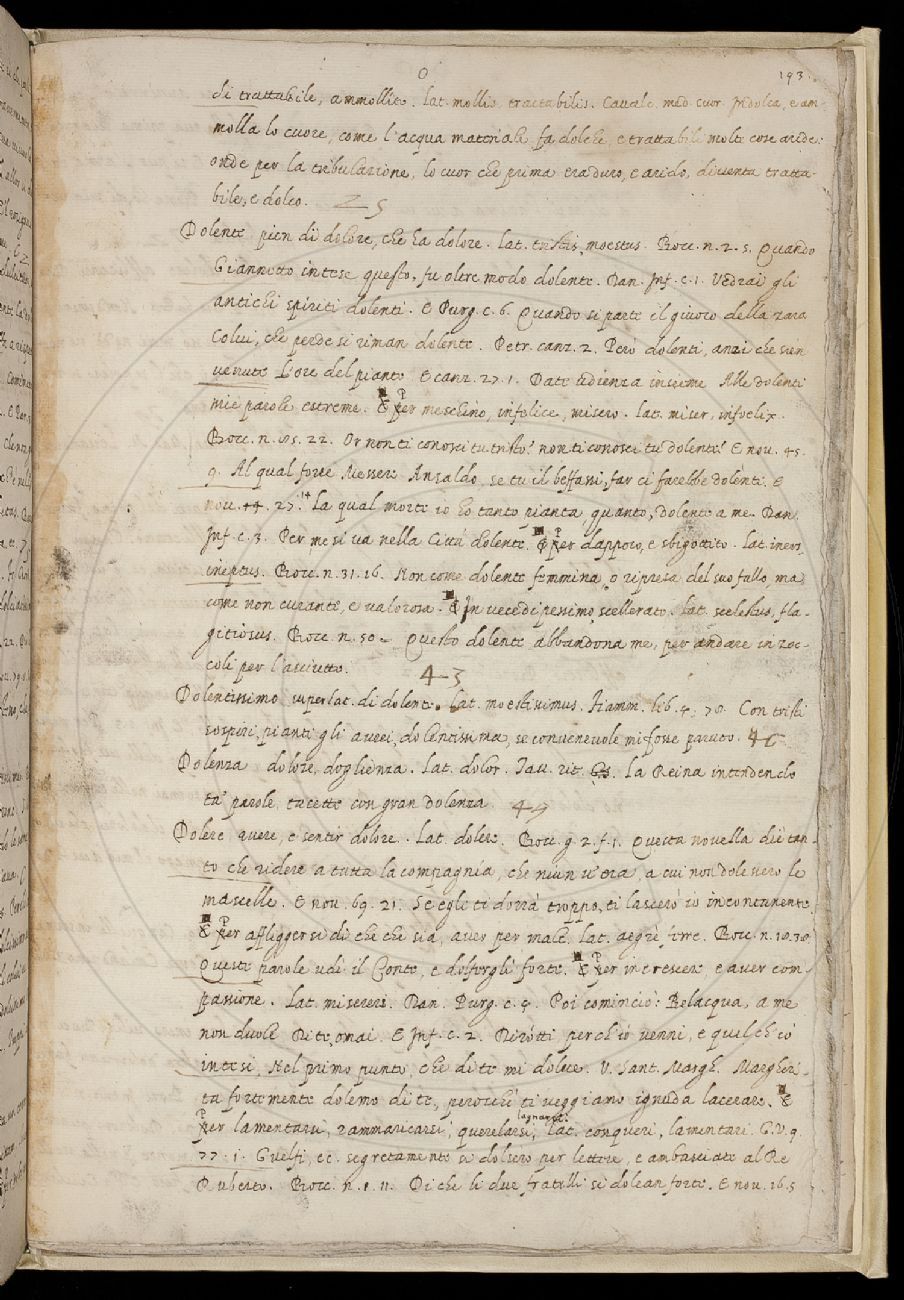 O
193.
di trattabile, ammollito. Lat. mollis, tractabilis. Cavalc. med. cuor. Indolca, e am-
molla lo cuore, come l'acqua materiale fa dolci, e trattabili molte cose aride:
onde per la tribulazione, lo cuor che prima era duro, e arido, diventa tratta-
bile, e dolce.
Dolente pien di dolore, che ha dolore. Lat. tristis, moestus. Bocc. n. 2. 5. Quando
Giannotto intese questo, fu oltre modo dolente. Dan. Inf. c. 1. Vedrai gli
antichi spiriti dolenti. E Purg. c. 6. Quando si parte il giuoco della zara
Colui, che perde si riman dolente. Petr. canz. 2. Però dolenti, anzi che sien
venute L'ore del pianto E canz. 27. 1. Date udienza insieme Alle dolenti
mie parole estreme. E Per meschino, infelice, misero. Lat. miser, infoelix.
Bocc. n. 85. 22. Or non ti conosci tu tristo? non ti conosci tu dolente? E nov. 45.
9. Al qual forse Messer Ansaldo, se tu il beffassi, far ci farebbe dolenti. E
nov. 14 27. La qual morte io ho tanto pianta, quanto, dolente a me. Dan.
Inf. c. 3. Per me si va nella Città dolente. E Per dappoco, e sbigottito. Lat. iners,
ineptus. Bocc. n. 31. 16. Non come dolente femmina, o ripresa del suo fallo, ma
come non curante, e valorosa. E In vece di pessimo, scellerato. Lat. scelestus, fla-
gitiosus. Bocc. n. 50. Questo dolente abbandona me, per andare in zoc-
coli per l'asciutto.
43
Dolentissimo superlat. di dolente. Lat. moestissimus. Fiamm. lib. 4. 70. Con tristi
sospiri, pianti gli avrei, dolentissima, se convenevole mi fosse paruto. 46
Dolenza dolore, doglienza. Lat. dolor. Tav. rit. La Reina intendendo
ta' parole, tacette con gran dolenza 49
Dolere avere, e sentir dolore. Lat. dolere. Bocc. g. 2. f. 1. Questa novella diè tan-
to che ridere a tutta la compagnia, che niun v'era, a cui non dolessero le
mascelle. E nov. 69. 21. Se egli ti dorrà troppo, ti lascerò io incontanente.
E Per affliggersi di che che sia, aver per male. Lat. aegrè ferre. Bocc. n. 18. 30
Queste parole udì il Conte, e dolfergli forte. E Per increscere, e aver com-
passione. Lat. misereri. Dan. Purg. c. 4. Poi cominciò: Belacqua, a me
non duole Di te, omai. E Inf. c. 2. Dirotti, perch'io venni, e quel ch'io
intesi, Nel primo punto, che di te mi dolve. V. Sant. Margh. Margheri-
ta fortemente dolemo di te, perocchè ti veggiamo ignuda lacerare. E
Per lamentarsi, rammaricarsi, querelarsi, lagnarsi. Lat. conqueri, lamentari. G. V. 9.
77. 1. Guelfi, ec. segretamente si dolsero per lettere, e ambasciate al Re
Ruberto. Bocc. n. 1. 11. Di che li due fratelli si dolean forte. E nov. 16. 5